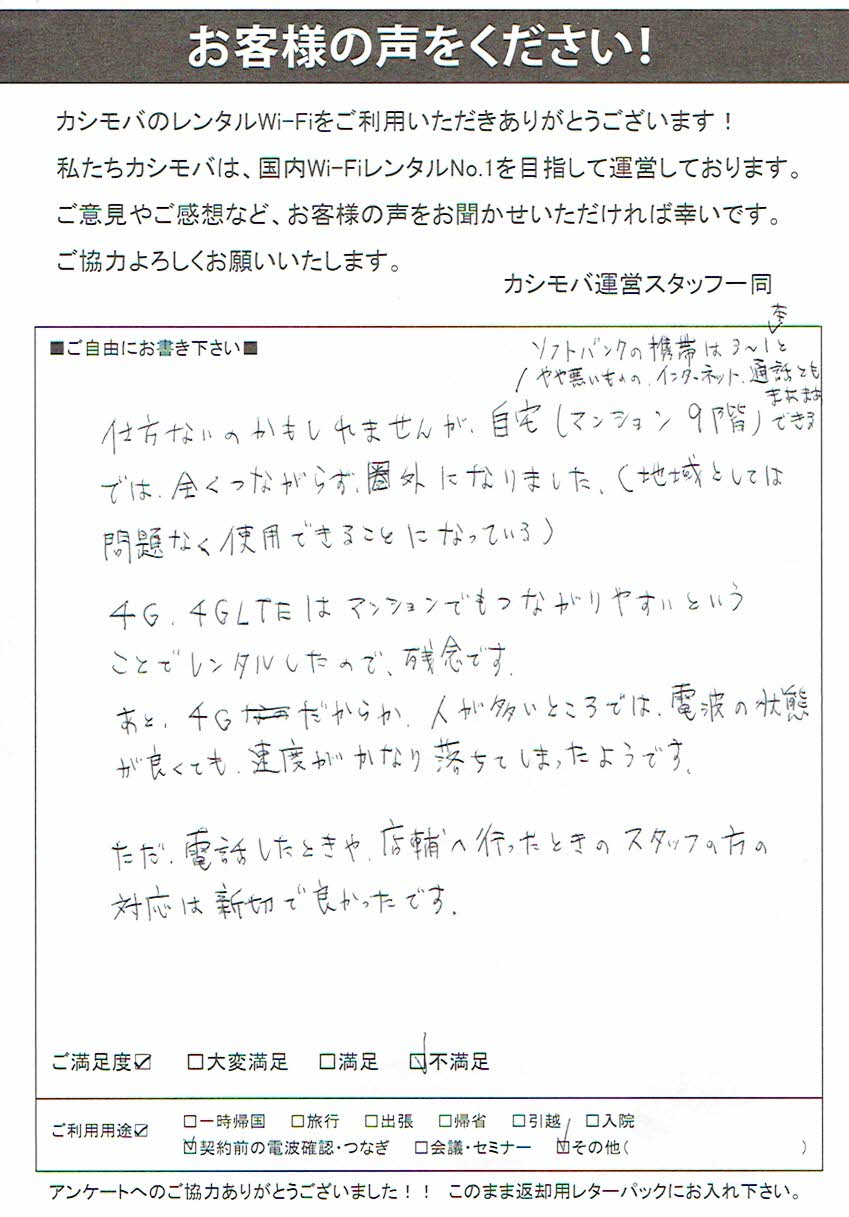 お客様の声をください!
カシモバのレンタルWi-Fiをご利用いただきありがとうございます!
私たちカシモバは、国内Wi-FiレンタルNo.1を目指して運営しております。
ご意見やご感想など、お客様の声をお聞かせいただければ幸いです。
ご協力よろしくお願いいたします。
カシモバ運営スタッフ一同
■ご自由にお書き下さい■
本
ソフトバンクの携帯は3~1と
やや悪いものの、インターネット、通話とも
まあまあ
できる
仕方ないのかもしれませんが、自宅(マンション9階)
では、全くつながらず、圏外になりました、(地域としては
問題なく使用できることになっている)
4G、4GLTEはマンションでもつながりやすいという
ことでレンタルしたので、残念です。
あと、4Gだからか、人が多いところでは、電波の状態
が良くても、速度がかなり落ちてしまったようです。
ただ、電話したときや、店輔へ行ったときのスタッフの方の
対応は新切で良かったです。
ご満足度☑ □大変満足 □満足 ☑不満足
ご利用用途☑ □一時帰国 □旅行 □出張 □帰省 □引越 □入院
☑契約前の電波確認・つなぎ □会議・セミナー ☑その他( )
アンケートへのご協力ありがとうございました!! このまま返却用レターパックにお入れ下さい。